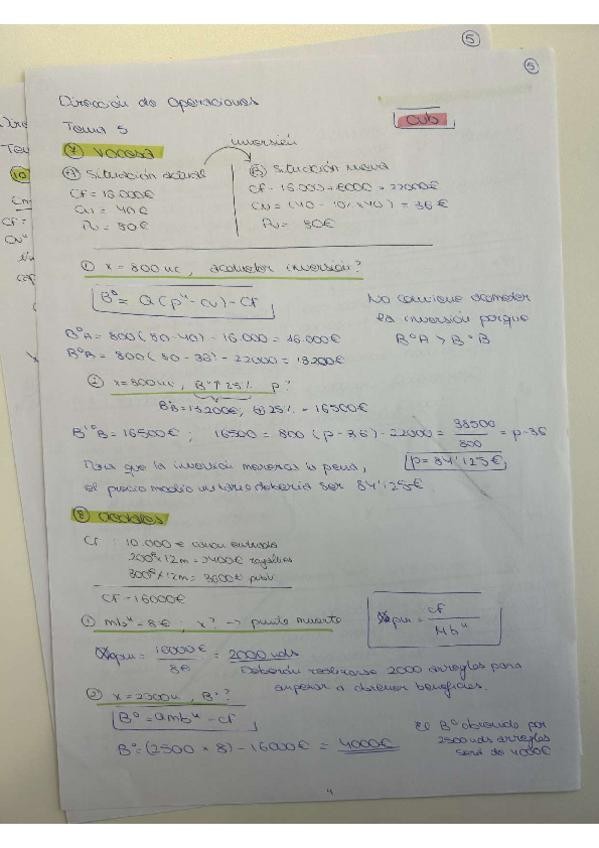 5
5
Dirección de Operaciones
cub
Tema 5
7 Vocesa
inversión
A Situación actual
CF = 16.000€
CVu = 40€
Pu = 80€
B Situación nueva
CF = 16.000 + 6000 = 22000€
CVu = (40 - 10% x40) = 36€
Pu = 80€
① x = 800 uc, acometer inversión?
Bº = Q (pu - cvu) - CF
No conviene acometer
la inversión porque
BºA > BºB
BºA = 800 (80 - 40) - 16.000 = 16.000€
BºB = 800 (80 - 36) - 22000 = 13200€
② x = 800 uc, Bº↑25% p?
BºB = 13200€, 25% = 16500€
Bº'B = 16500€ ; 16500 = 800 (p - 36) - 22000 = 38500/800 = p - 36
Para que la inversión merezca la pena,
p = 84'125€
el precio medio unitario debería ser 84'125€
8
CF : 10.000€
200€ x 12m = 2400€
300€ x 12m = 3600€ publ.
CF = 16000€
① mbu = 8€ ; x? → punto muerto
Xpm = CF / Mbu
Xpm = 16000€ / 8€ = 2000 uds
Deberán realizarse 2000 arreglos para
empezar a obtener beneficios.
② x = 2500 u, Bº?
Bº = Q mbu - CF
El Bº obtenido por
2500 uds arreglos
será de 4000€
Bº = (2500 x 8) - 16000€ = 4000€
4
10
CF =
CVu